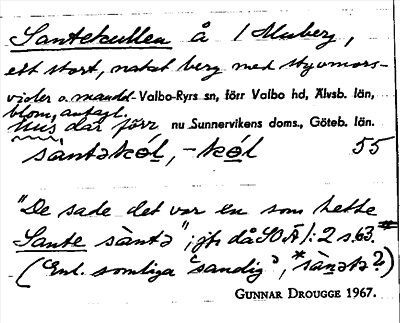 Santekullen å 1 Muberg,
ett stort, naket berg med styvmors-
violer o. mandel- Valbo-Ryrs sn, förr Valbo hd, Älvsb. län,
blom, antagl.
hus där förr nu Sunnervikens doms., Göteb. län.
säntəkól, -kól 55
"De sade det var en som hette
Sante sàntə"; jfr då SOÄ 1:2 s. 63.
(Enl. somliga "sandig", *sàṇətə?)
GUNNAR DROUGGE 1967.